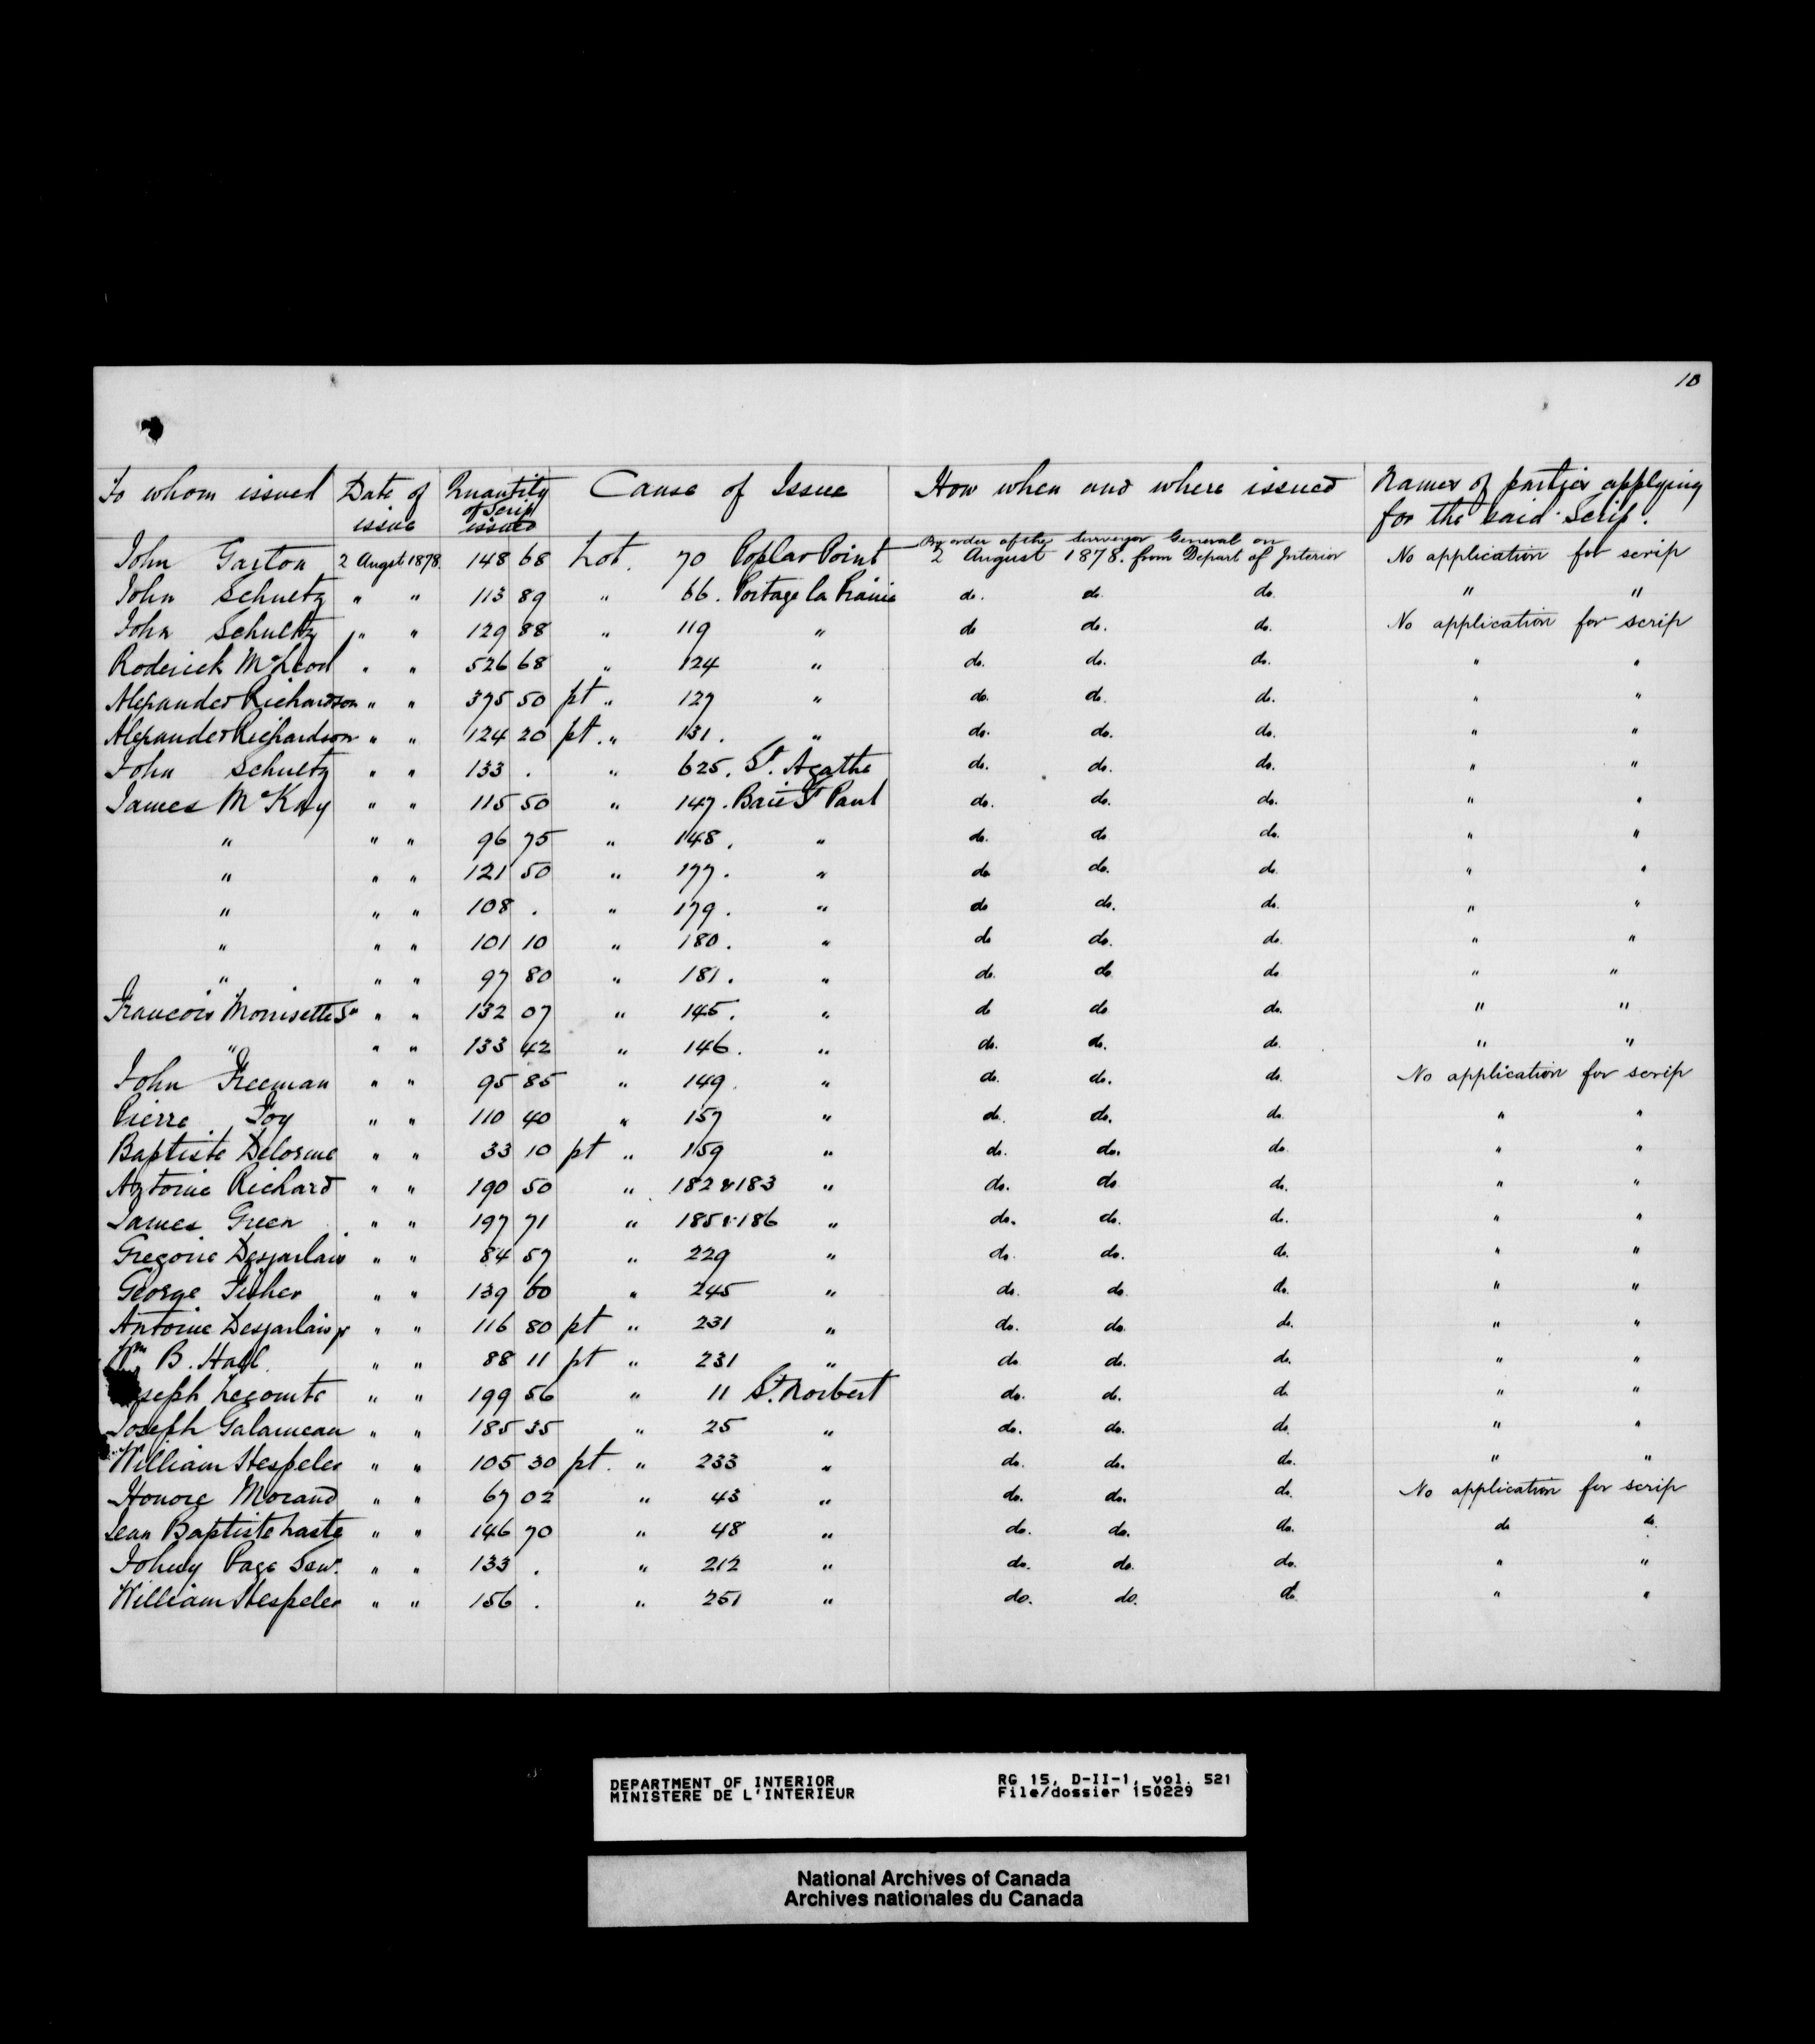 10
To whom issued Date of issue Quantity of Scrip issued Cause of Issue How when and where issued Names of parties applying for the said Scrip.
John Gaston 2 Augst 1878. 148 68 Lot. 70 Poplar Point By order of the Surveyor General on 2 August 1878. from Depart of Interior No application for scrip
John Schultz " " 113 89 " 66. Portage la Prairie do. do. do. " "
John Schultz " " 129 88 " 119 " do do. do. No application for scrip
Roderick McLeod " " 526 68 " 124 " do. do. do. " "
Alexander Richardson " " 375 50 pt " 127 " do. do. do. " "
Alexander Richardson " " 124 20 pt. " 131. " do. do. do. " "
John Schultz " " 133 . " 625. St. Agathe do. do. do. " "
James McKay " " 115 50 " 147. Baie St Paul do. do. do. " "
" " " 96 75 " 148. " do. do do. " "
" " " 121 50 " 177. " do do. do. " "
" " " 108 . " 179. " do do. do. " "
" " " 101 10 " 180. " do do. do. " "
" " " 97 80 " 181. " do. do do " "
Francois Morrisette Sr " " 132 07 " 145. " do do do. " "
" " " 133 42 " 146. " do. do. do. " "
John Freeman " " 95 85 " 149. " do. do. do. No application for scrip
Pierre Foy " " 110 40 " 157 " do. do. do. " "
Baptiste Delorme " " 33 10 pt " 159 " do. do. do. " "
Antoine Richard " " 190 50 " 182 & 183 " do. do do. " "
James Green " " 197 71 " 185 & 186 " do. do. do. " "
Gregoire Desjarlais " " 84 57 " 229 " do. do. do. " "
George Fisher " " 139 60 " 245 " do. do. do. " "
Antoine Desjarlais jr " " 116 80 pt " 231 " do. do. do. " "
Wm B. Hall. " " 88 11 pt " 231 " do do. do. " "
Joseph Lecomte " " 199 56 " 11 St. Norbert do. do. do " "
Joseph Galarneau " " 185 35 " 25 " do. do. do. " "
William Hespeler " " 105 30 pt. " 233 " do. do. do. " "
Honore Morand " " 67 02 " 43 " do. do. do. No application for scrip
Jean Baptiste Laste " " 146 70 " 48 " do. do. do. do do.
Johny Page Sen. " " 133 . " 212 " do. do. do. " "
William Hespeler " " 156 . " 251 " do. do. do " "
DEPARTMENT OF INTERIOR RG 15, D-II-1, vol. 521
MINISTERE DE L'INTERIEUR File/dossier 150229
National Archives of Canada
Archives nationales du Canada